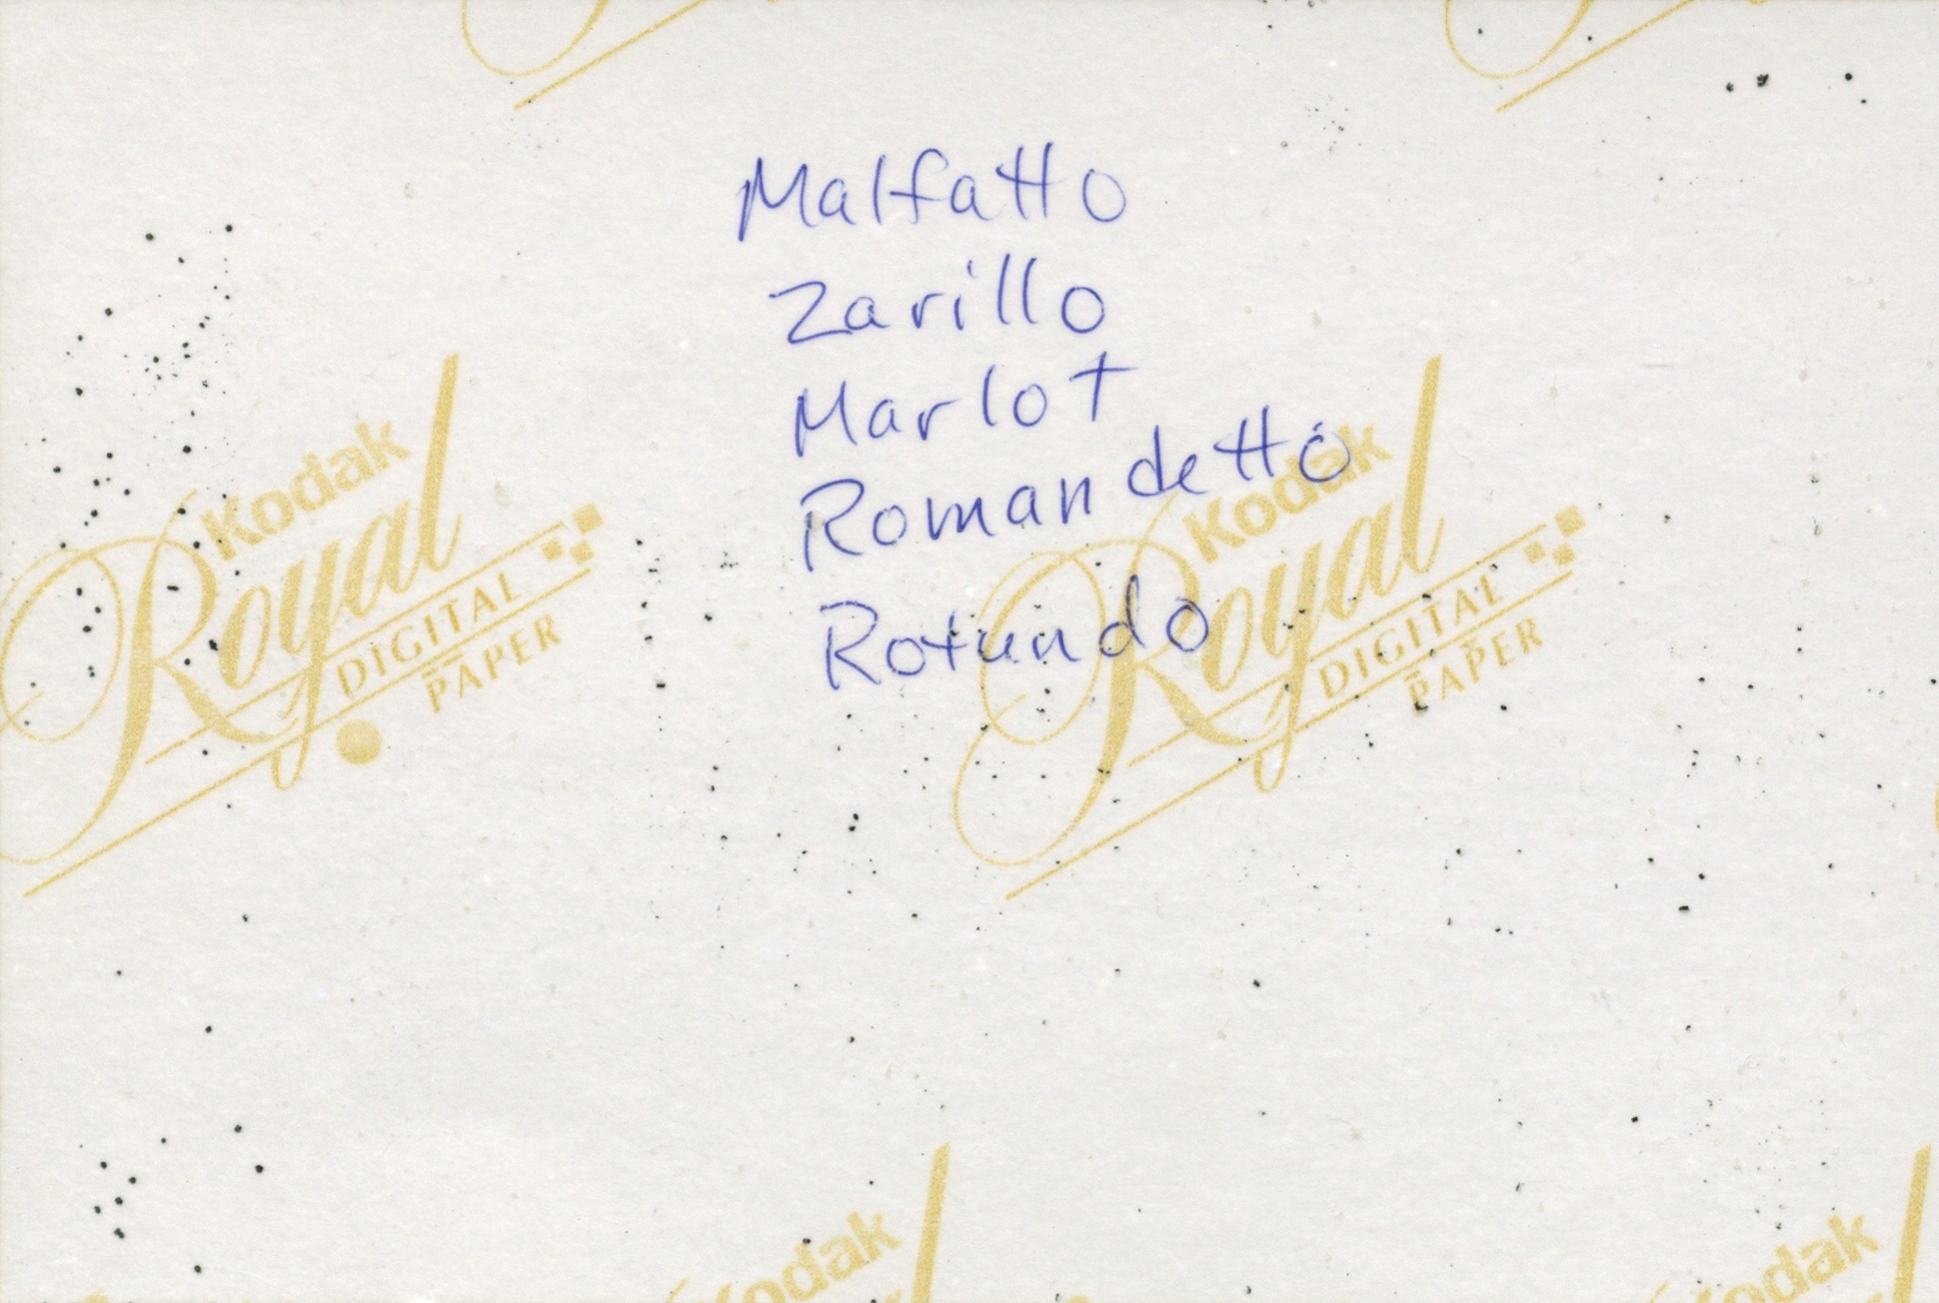 Malfatto
Zarillo
Marlot
Romandetto
Rotundo
Kodak
Royal
DIGITAL
PAPER
Kodak
Royal
DIGITAL
PAPER
Kodak
Kodak